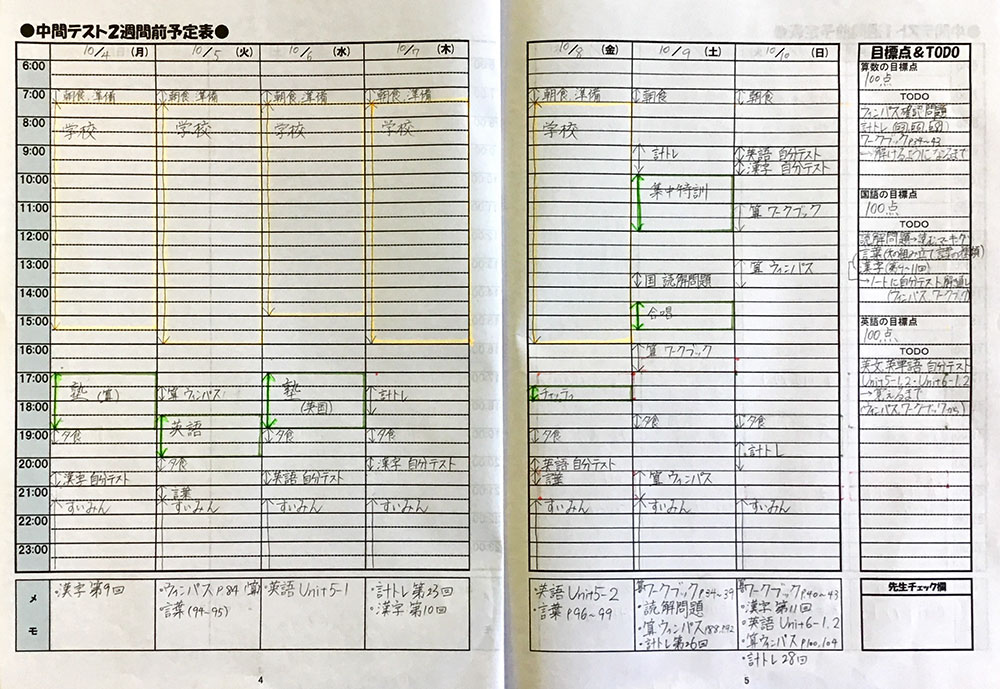 ●中間テスト2週間前予定表●
10/4 (月) 10/5 (火) 10/6 (水) 10/7 (木)
6:00
7:00 朝食、準備 朝食、準備 朝食、準備 朝食、準備
8:00 学校 学校 学校 学校
9:00
10:00
11:00
12:00
13:00
14:00
15:00
16:00
17:00 塾(算) 算 ウィンパス 塾(英国) 計トレ
18:00 英語
19:00 夕食 夕食 夕食
20:00 夕食 漢字 自分テスト
漢字 自分テスト 英語 自分テスト
21:00 言葉
すいみん すいみん すいみん すいみん
22:00
23:00
メモ
・漢字 第9回
・ウィンパス P84 算
・言葉(94~95)
・英語 Unit5-1
・計トレ 第23回
・漢字 第10回
4
10/8 (金) 10/9 (土) 10/10 (日)
朝食、準備 朝食 朝食
学校
計トレ 英語 自分テスト
漢字 自分テスト
集中特訓
算 ワークブック
算 ウィンパス
国 読解問題
合唱
算 ワークブック
チェッラ
夕食 夕食
夕食
計トレ
英語 自分テスト
言葉 算 ウィンパス
すいみん すいみん すいみん
英語 Unit5-2
・言葉 P96~99
算ワークブックP34~39
・読解問題
・算 ウィンパス188.192
・計トレ 第26回
算ワークブックP40~43
・漢字 第11回
・英語 Unit6-1.2
・算ウィンパス P100.104
・計トレ 28回
目標点&TODO
算数の目標点
100点
TODO
ウィンパス 確認問題
計トレ
ワークブック P34~43
→解けるようになるまで
国語の目標点
100点
TODO
読解問題→読む、マーキング
漢字(第9~11回)
→ノートに自分テスト
(ウィンパス ワークブック)
英語の目標点
100点
TODO
英文 英単語 自分テスト
Unit5-1.2・Unit6-1.2
→覚えるまで
(ウィンパス、ワークブックから)
先生チェック欄
5